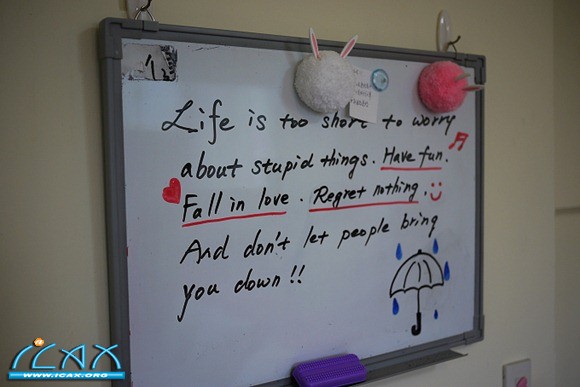 Life is too short to worry
about stupid things. Have fun.
Fall in love. Regret nothing.
And don't let people bring
you down!!
iCAX
WWW.ICAX.ORG